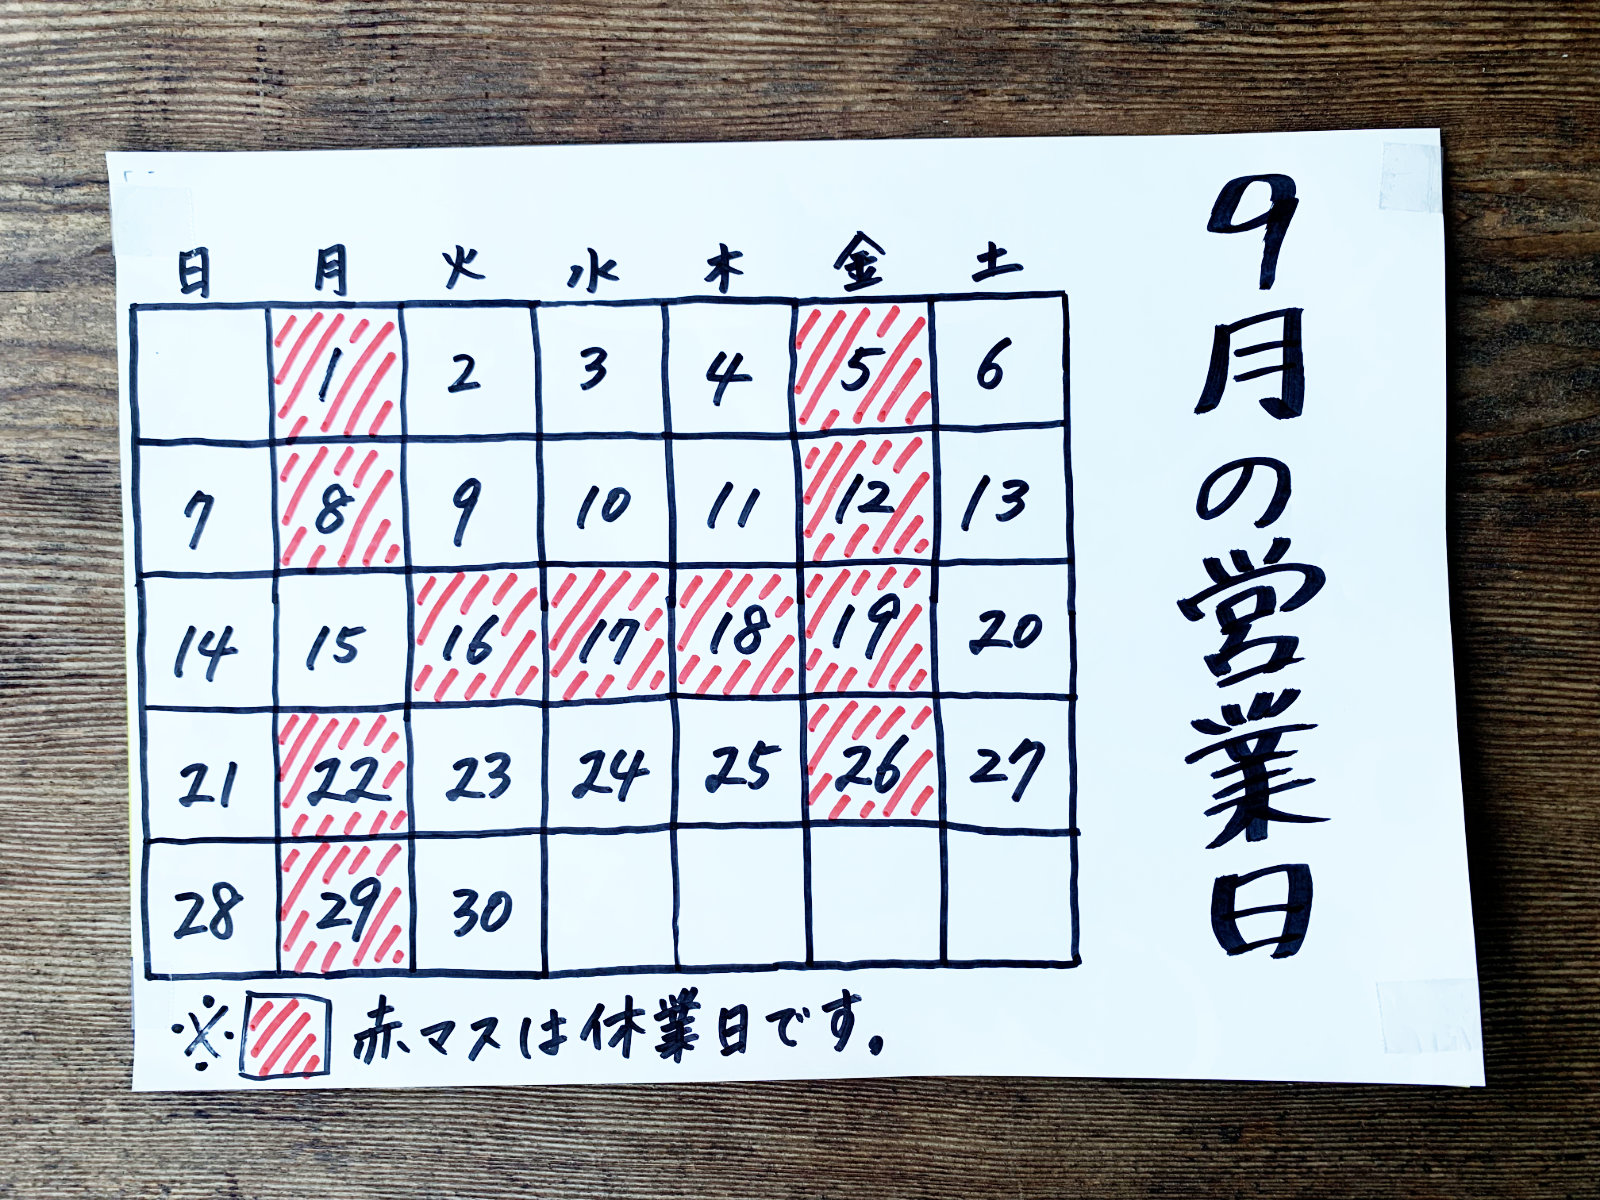 9月の営業日
日 月 火 水 木 金 土
1 2 3 4 5 6
7 8 9 10 11 12 13
14 15 16 17 18 19 20
21 22 23 24 25 26 27
28 29 30
※ 赤マスは休業日です。